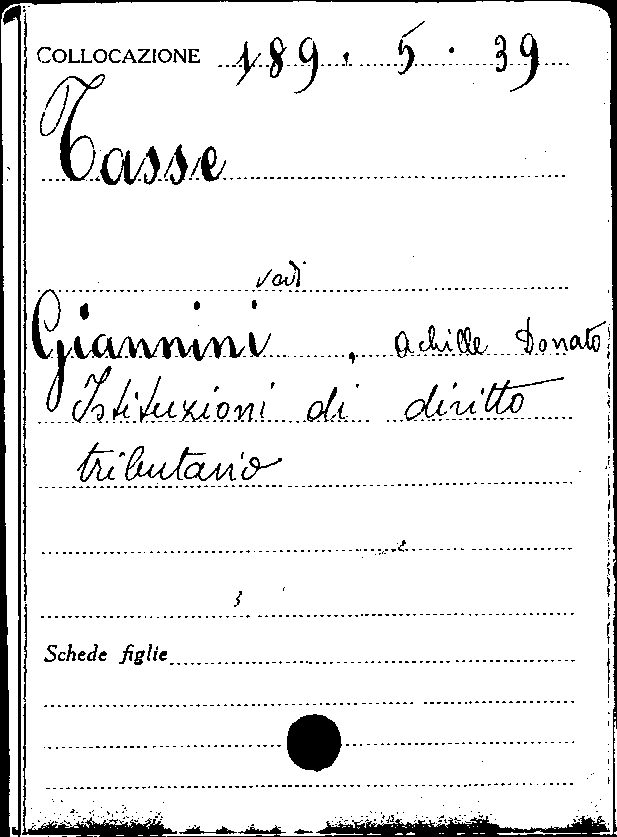 COLLOCAZIONE 189. 5. 39
Tasse
vedi
Giannini, Achille Donato
Istituzioni di diritto
tributario
Schede figlie